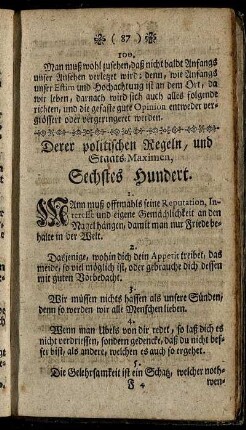 ( 87 )
100.
Man muß wohl zusehen, daß nicht bald Anfangs
unser Ansehen verletzt wird; denn, wie Anfangs
unser Estim und Hochachtung ist an dem Ort, da
wir leben, darnach wird sich auch alles folgende
richten, und die gefaste gute Opinion entweder ver-
grössert oder vergeringeret werden.
Derer politischen Regeln, und
Staats-Maximen,
Sechstes Hundert.
1.
MAnn muß offtermahls seine Reputation, In-
teresse und eigene Gemächlichkeit an den
Nagel hangen, damit man nur Friede be-
halte in der Welt.
2.
Dasjenige, wohin dich dein Appetit treibet, das
meide, so viel möglich ist, oder gebrauche dich dessen
mit guten Vorbedacht.
3.
Wir müssen nichts hassen als unsere Sünden,
denn so werden wir alle Menschen lieben.
4.
Wenn man Ubels von dir redet, so laß dich es
nicht verdriessen, sondern gedencke, daß du nicht bes-
ser bist, als andere, welchen es auch so ergehet.
5.
Die Gelehrsamkeit ist ein Schatz, welcher noth-
F 4
wen-